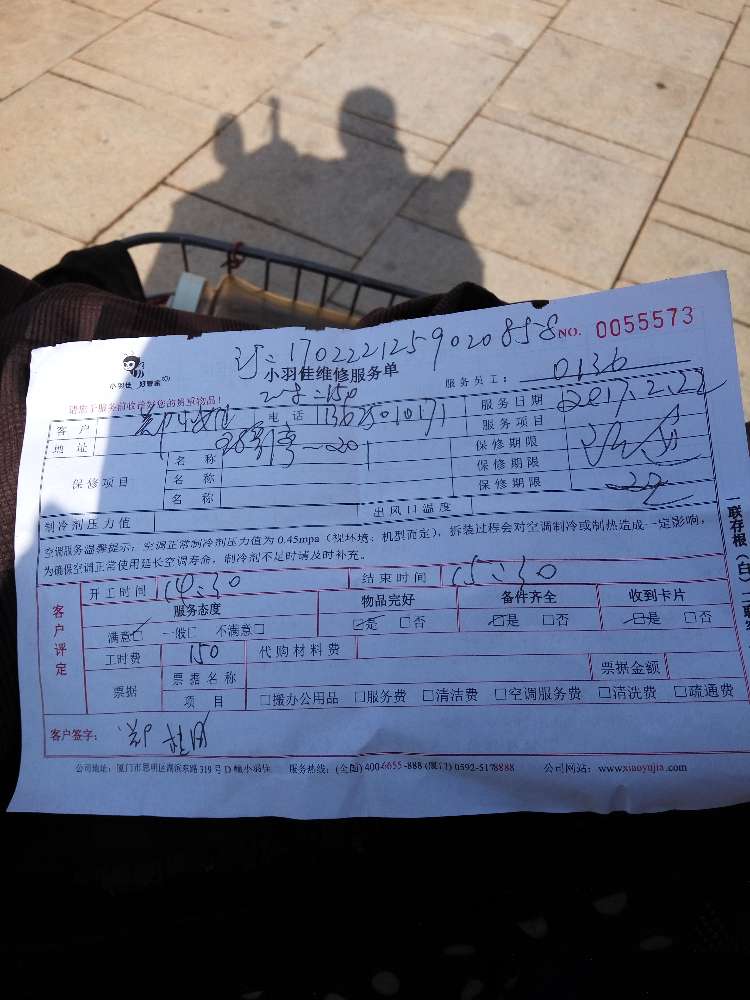 订:1702221259020858 NO. 0055573
小羽佳 好管家
小羽佳维修服务单
服务员工: 0136
请您于服务前收拾好您的贵重物品!
客户 电话 服务日期 2017.2.22
地址 服务项目
保修项目 名称 保修期限
名称 保修期限
名称 保修期限
制冷剂压力值 出风口温度
空调服务温馨提示:空调正常制冷剂压力值为0.45mpa(视环境、机型而定),拆装过程会对空调制冷或制热造成一定影响,
为确保空调正常使用延长空调寿命,制冷剂不足时请及时补充。
客户评定
开工时间 14:30 结束时间 15:30
服务态度 物品完好 备件齐全 收到卡片
满意☑ 一般□ 不满意□ ☑是 □否 ☑是 □否 ☑是 □否
工时费 150 代购材料费
票据 票据名称 票据金额
项目 □搬办公用品 □服务费 □清洁费 □空调服务费 □清洗费 □疏通费
客户签字:
公司地址:厦门市思明区湖滨东路319号D幢小羽佳 服务热线:(全国)400-6655-888 (厦门)0592-5178888 公司网站:www.xiaoyujia.com